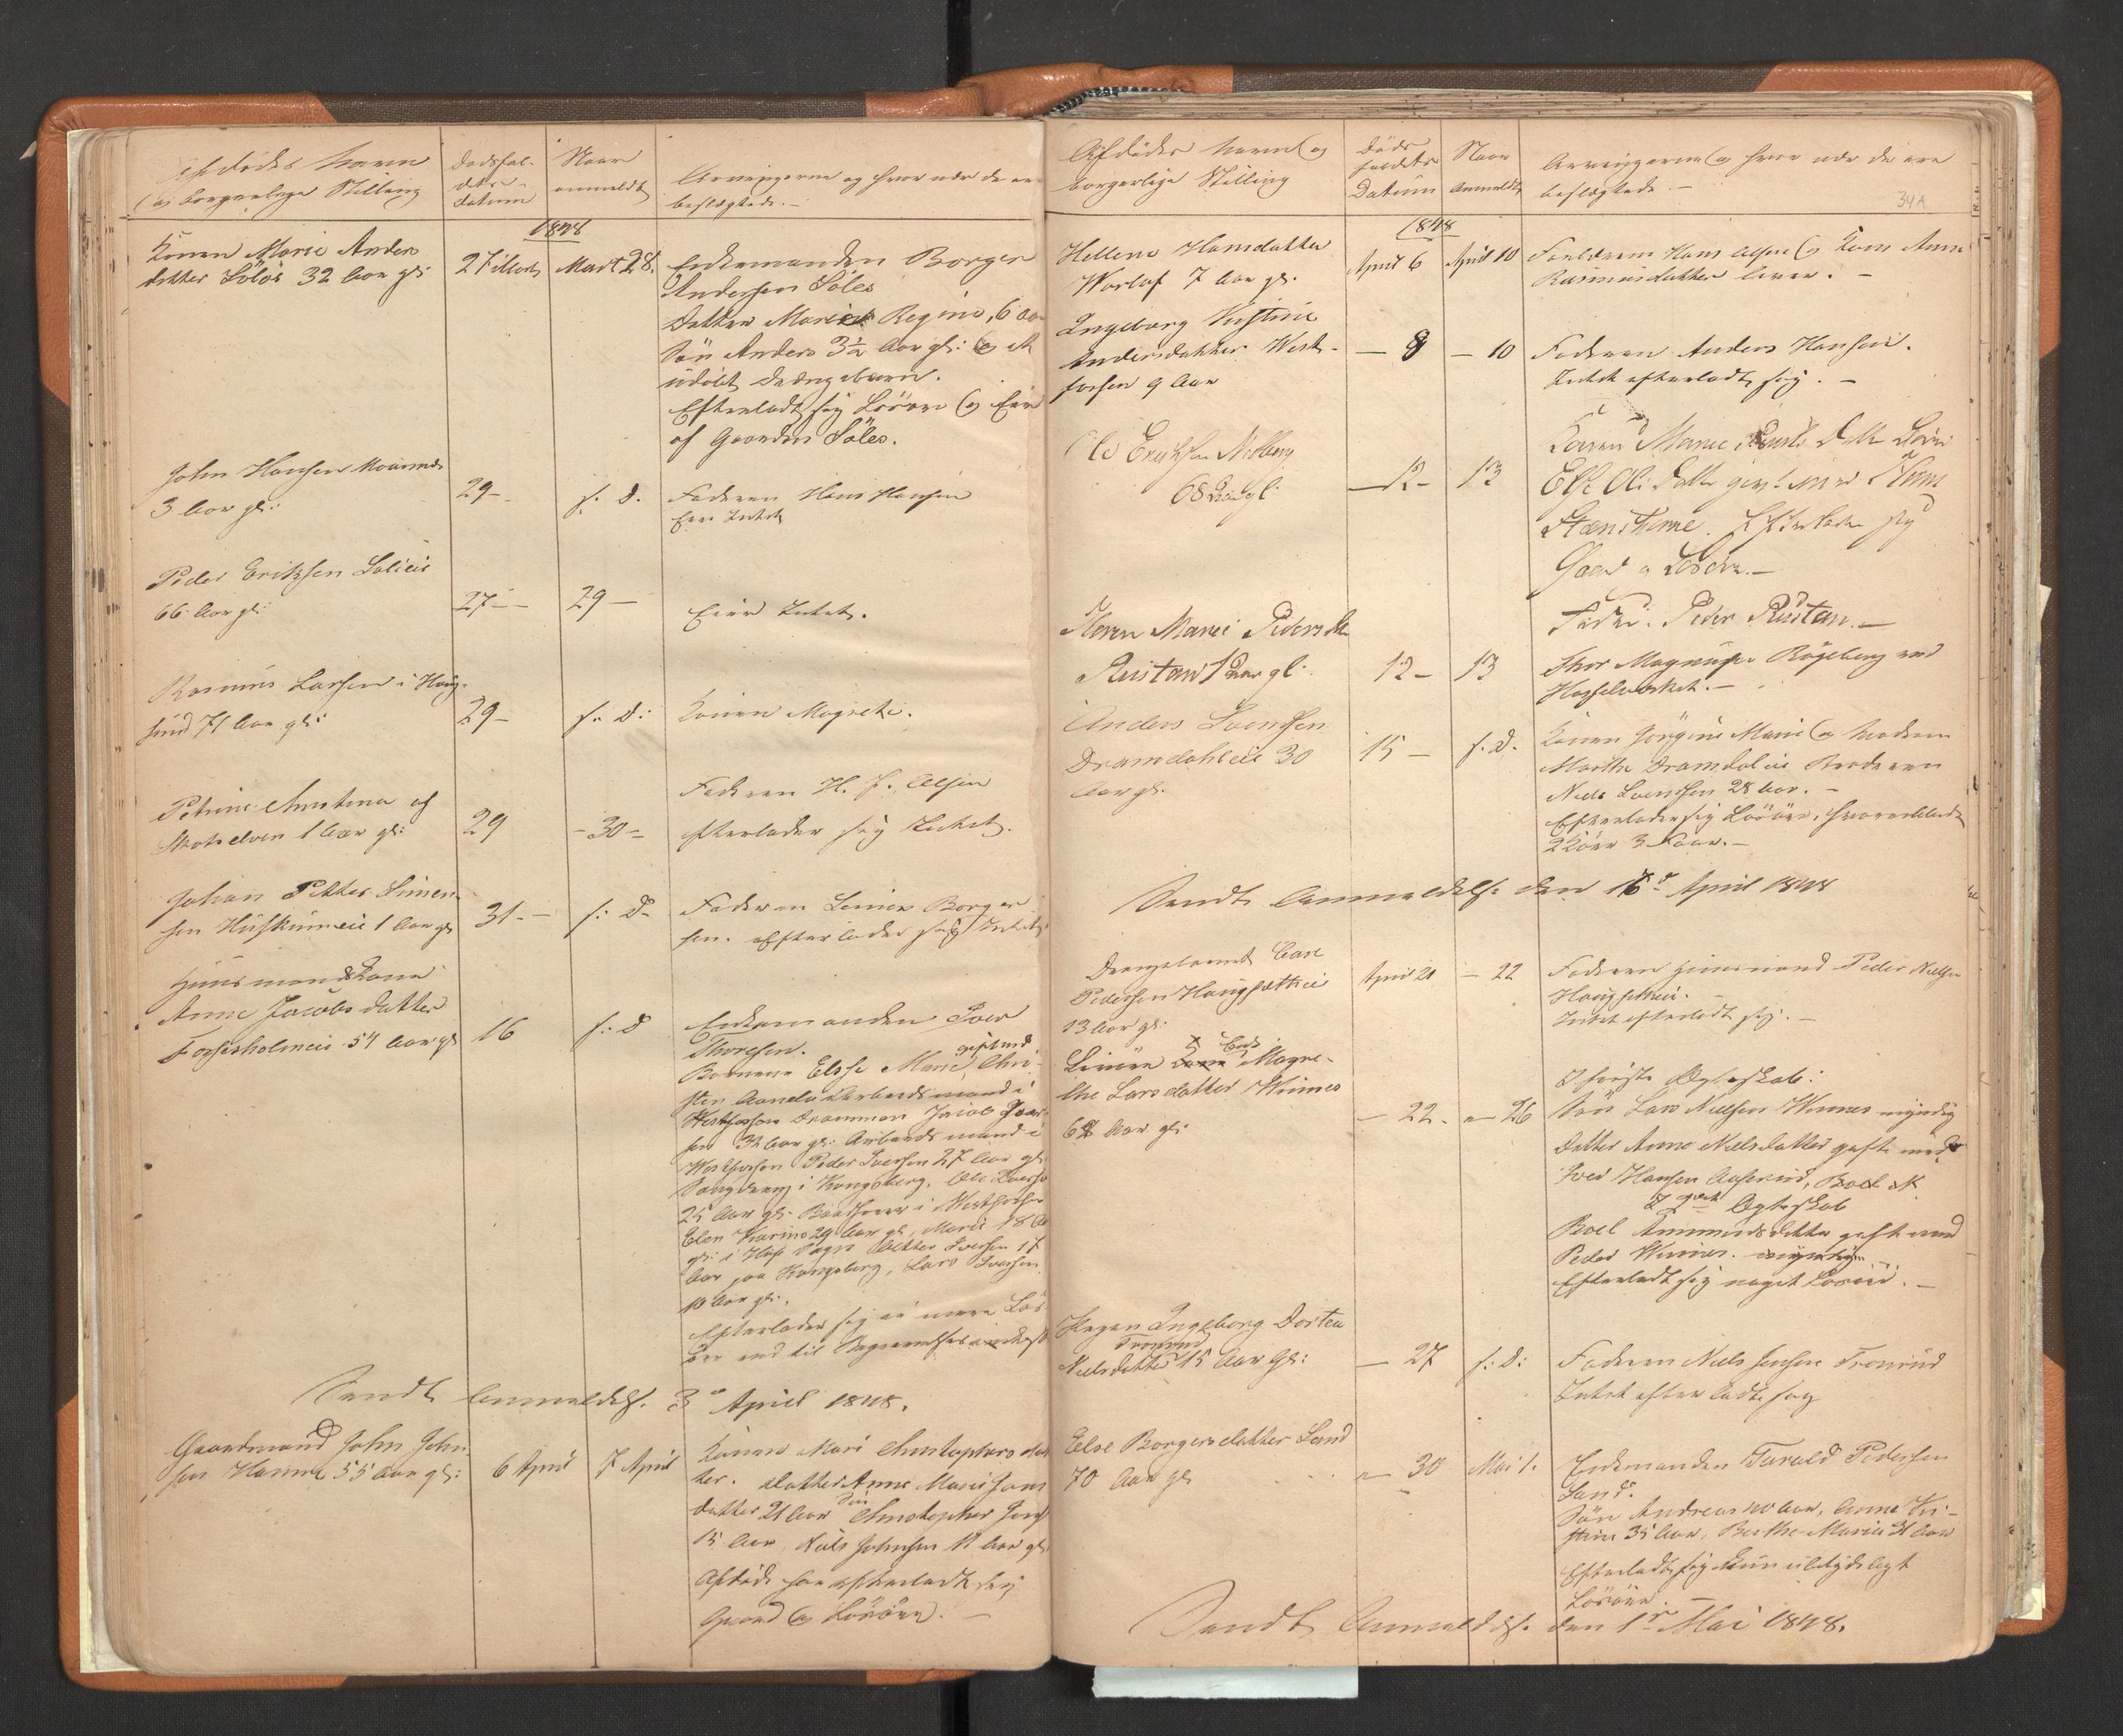 Afdødes Navn
og borgerlige Stilling
Dødsfal-
dets
Datum
Naar
anmeldt
Arvingerne og hvor nær de ere
beslægtede.-
1848
Konen Marie Anders
datter Söløs 32 Aar gl:
27 Marts
Mart 28.
Enkemanden Borger
Andersen Söles
Datter Marie Regine, 6 Aar
Søn Anders 3½ Aar gl: og et
udøbt Drengebarn.
Efterladt sig Løsøre og Eier
af Gaarden Söles.
John Hansen
3 Aar gl:
29-
s. D.
Faderen Hans Hansen
Eier Intet
Peder Eriksen
66 Aar gl:
27-
29-
Eier Intet.
Rasmus Larsen i Haug-
sund 71 Aar gl:
29-
s. D:
Konen Magrete.
Petrine Amrtina af
Skotselven 1 Aar gl:
29
-30-
Faderen H. J. Olsen
efterlader sig Intet.
Johan Petter Simen-
sen 1 Aar gl
31.-
s: D-
Faderen Simen Borger
sen. efterlader sig Intet
Huusmandskone
Anne Jacobsdatter
Fossesholmeie 54 Aar gl
16
s: D
Enkemanden Iver
Thoresen.
Børnene Elsse Marie, gift med Chri-
sten Arbeidsmand i
Westfossen Drammen Jacob Iver
sen 32 Aar gl: Arbeidsmand i
Westfossen Peder Iversen 27 Aar gl:
i Kongsberg, Ole Iversen
25 Aar gl: i Westfossen
Elen Karine 29 Aar gl, Marie 18 Aar
gl: i Iversen 17
Aar paa Kongsberg, Lars Iversen
10 Aar gl:.
Efterlader sig ei mere Løs
øre end til Begravelses
Sendt Anmeldelse 3die April 1848.
Gaardmand John John
sen Hamre 55 Aar gl:
6 April
7 April
Konen Mari Christophersdat
ter. Datter Anne Marie Jons
datter 21 Aar Søn Christopher Jons
15 Aar, Niels Johnsen 11 Aar gl:
Afdøde har efterladt sig
Gaard og Løsøre. -
Afdødes Navn og
borgerlige Stilling
Døds
faldets
Datum
Naar
Anmeldt
Arvingerne og hvor nær de ere
beslægtede. -
34A
1848
Hellene Hansdatter
7 Aar gl.
April 6
April 10
Forældrene Hans Olsen og Kone Anne
Rasmusdatter lever. -
Ingeborg Kristine
Andersdatter West-
fossen 9 Aar
- 8
- 10
Faderen Anders Hansen.
Intet efterladt sig. -
Ole Eriksen
68 Aar gl:
-12-
13
Konen Marie
Else Ols Datter givt med
Efterlader sig
Gaard og Løsøre.-
Karen Marie Peders Dtr
Rustan 1 Aar gl.
12-
13
Fader. Peder Rustan.-
Thor
Hasselværket.-
Anders Svendsen
Dramdahleie 30
Aar gl.
15 -
s. D.
Konen Jörgine Marie og Moderen
Marthe Dramdaleie Broderen
Niels Svendsen 28 Aar. -
Efterlader sig Løsøre, hvoriblandt
2 Køer 3 Faar.-
Sendt Anmeldelse den 16d April 1848
Drengebarnet Carl
Pedersen Haugsætheie
13 Aar gl:
April 21
- 22
Faderen Huusmand Peder Nielsen
Haugsetheie.
Intet efterladt sig. -
Magre-
the Larsdatter Wimes
68 Aar gl:
- 22.
- 26
I første Ægteskab:
Søn Lars Nielsen Wimes myndig
Datter Anne Nielsdatter gift med
Iver Hansen
I 2det Ægteskab
Boel Ammundsdatter gift med
Peder Wimes.
Efterladt sig noget Løsøre. -
Pigen Ingeborg Dortea
Tronrud
Nielsdatter 15 Aar gl:
- 27
s: D:
Faderen Niels Jensen Tronrud
Intet efterladt sig
Else Borgersdatter Sand
70 Aar gl
- 30
Mai 1.
Enkemanden Tarald Pedersen
Sand.
Søn Andreas 40 Aar, Anne Kri-
stine 35 Aar, Berthe Marie 31 Aar
Efterladt sig kun ubetydeligt
Løsøre. -
Sendt Anmeldelse den 1ste Mai 1848.